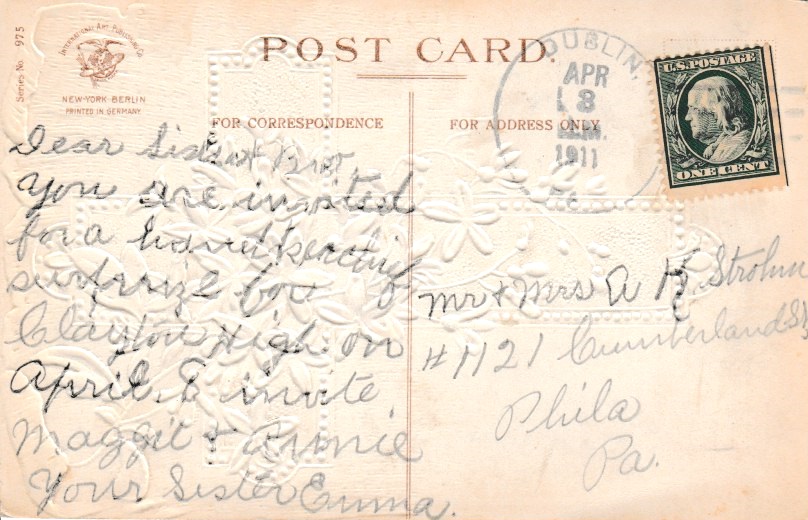 Series No. 975
INTERNATIONAL ART PUBLISHING CO.
NEW-YORK-BERLIN
PRINTED IN GERMANY
POST CARD.
FOR CORRESPONDENCE
FOR ADDRESS ONLY
DUBLIN,
APR
8
1911
U.S.POSTAGE
ONE CENT
Dear Sister & Bro
You are invited
for a
surprize for
Clayton High on
April 8 invite
Maggie & Annie
Your Sister Emma.
Mr & Mrs A K Strohm
#1121 Cumberland St
Phila
Pa.